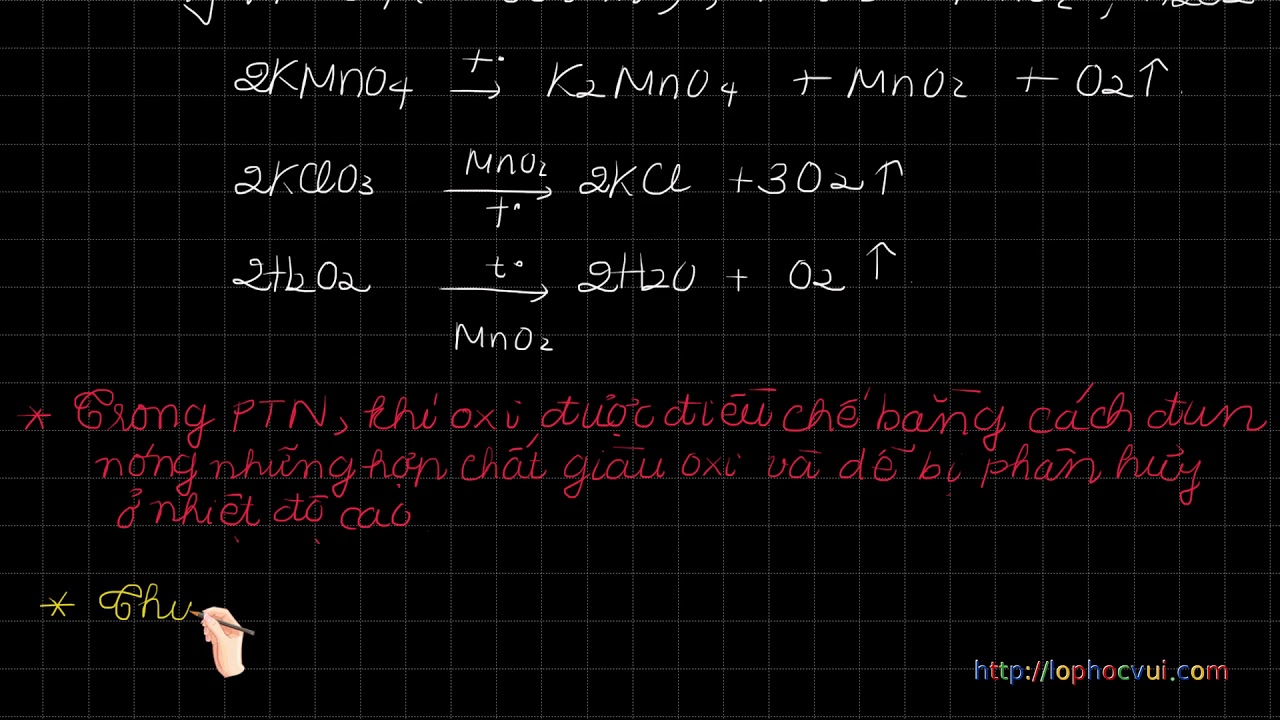 2KMnO4 t° → K2MnO4 + MnO2 + O2 ↑
2KClO3 MnO2 → t° 2KCl + 3O2 ↑
2H2O2 t° → MnO2 2H2O + O2 ↑
* Trong PTN, khí oxi được điều chế bằng cách đun
nóng những hợp chất giàu oxi và dễ bị phân hủy
ở nhiệt độ cao
* Thu
http://lophocvui.com